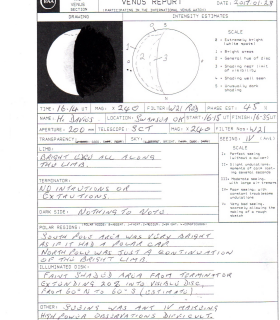 BAA
VENUS
SECTION
VENUS REPORT
(PARTICIPATING IN THE INTERNATIONAL VENUS WATCH)
DATE: 2017-01-28
DRAWING
INTENSITY ESTIMATES
SCALE
0 = Extremely bright
(white spots)
1 = Bright areas
2 = General hue of disc
3 = Shading near limit
of visibility
4 = Shading well seen
5 = Unusually dark
shading
TIME: 16-14 UT MAG: × 240 FILTER: W21 PHASE EST: 45 %
NAME: H. DAVIES LOCATION: SWANSEA UK START: 16:15 UT FINISH: 16:35 UT
APERTURE: 200 mm TELESCOPE: SCT MAG: × 240 FILTER NOS: W21
TRANSPARENCY: SKY: SEEING: IV
LIMB:
BRIGHT LIMB ALL ALONG
THE LIMB.
TERMINATOR:
NO INTRUTIONS OR
EXTRUTIONS.
DARK SIDE: NOTHING TO NOTE
SCALE
I: Perfect seeing
(without a quiver)
II: Slight undulations
III: Moderate seeing,
with large air tremors
IV: Poor seeing, with
constant troublesome
undulations
V: Very bad seeing,
POLAR REGIONS:
SOUTH POLE AREA WAS VERY BRIGHT
AS IF IT HAD A POLAR CAP.
NORTH POLE WAS JUST A CONTINUATION
OF THE BRIGHT LIMB.
ILLUMINATED DISK:
FAINT SHADED AREA FROM TERMINATOR
EXTENDING 20% INTO VISIBLE DISC,
FROM 60° N TO 60° S (ESTIMATE)
OTHER: SEEING WAS ANT IV MAKING
HIGH POWER OBSERVATIONS DIFFICULT.